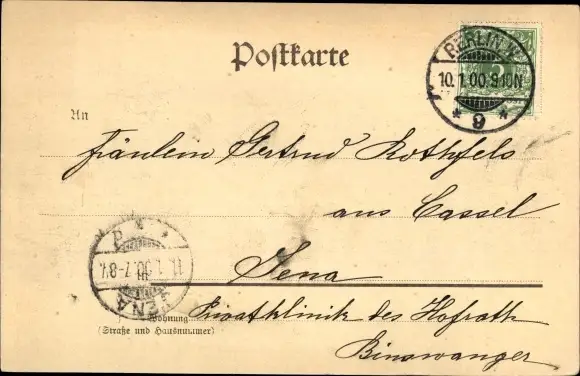 Postkarte
BERLIN W.
10.1.00.9-10N
* 9 *
An
Fräulein Gertrud Rothfels
aus Cassel
Jena
Privatklinik des Hofrath
Binswanger
JENA
11.1.00.7-8V.
Wohnung
(Straße und Hausnummer)